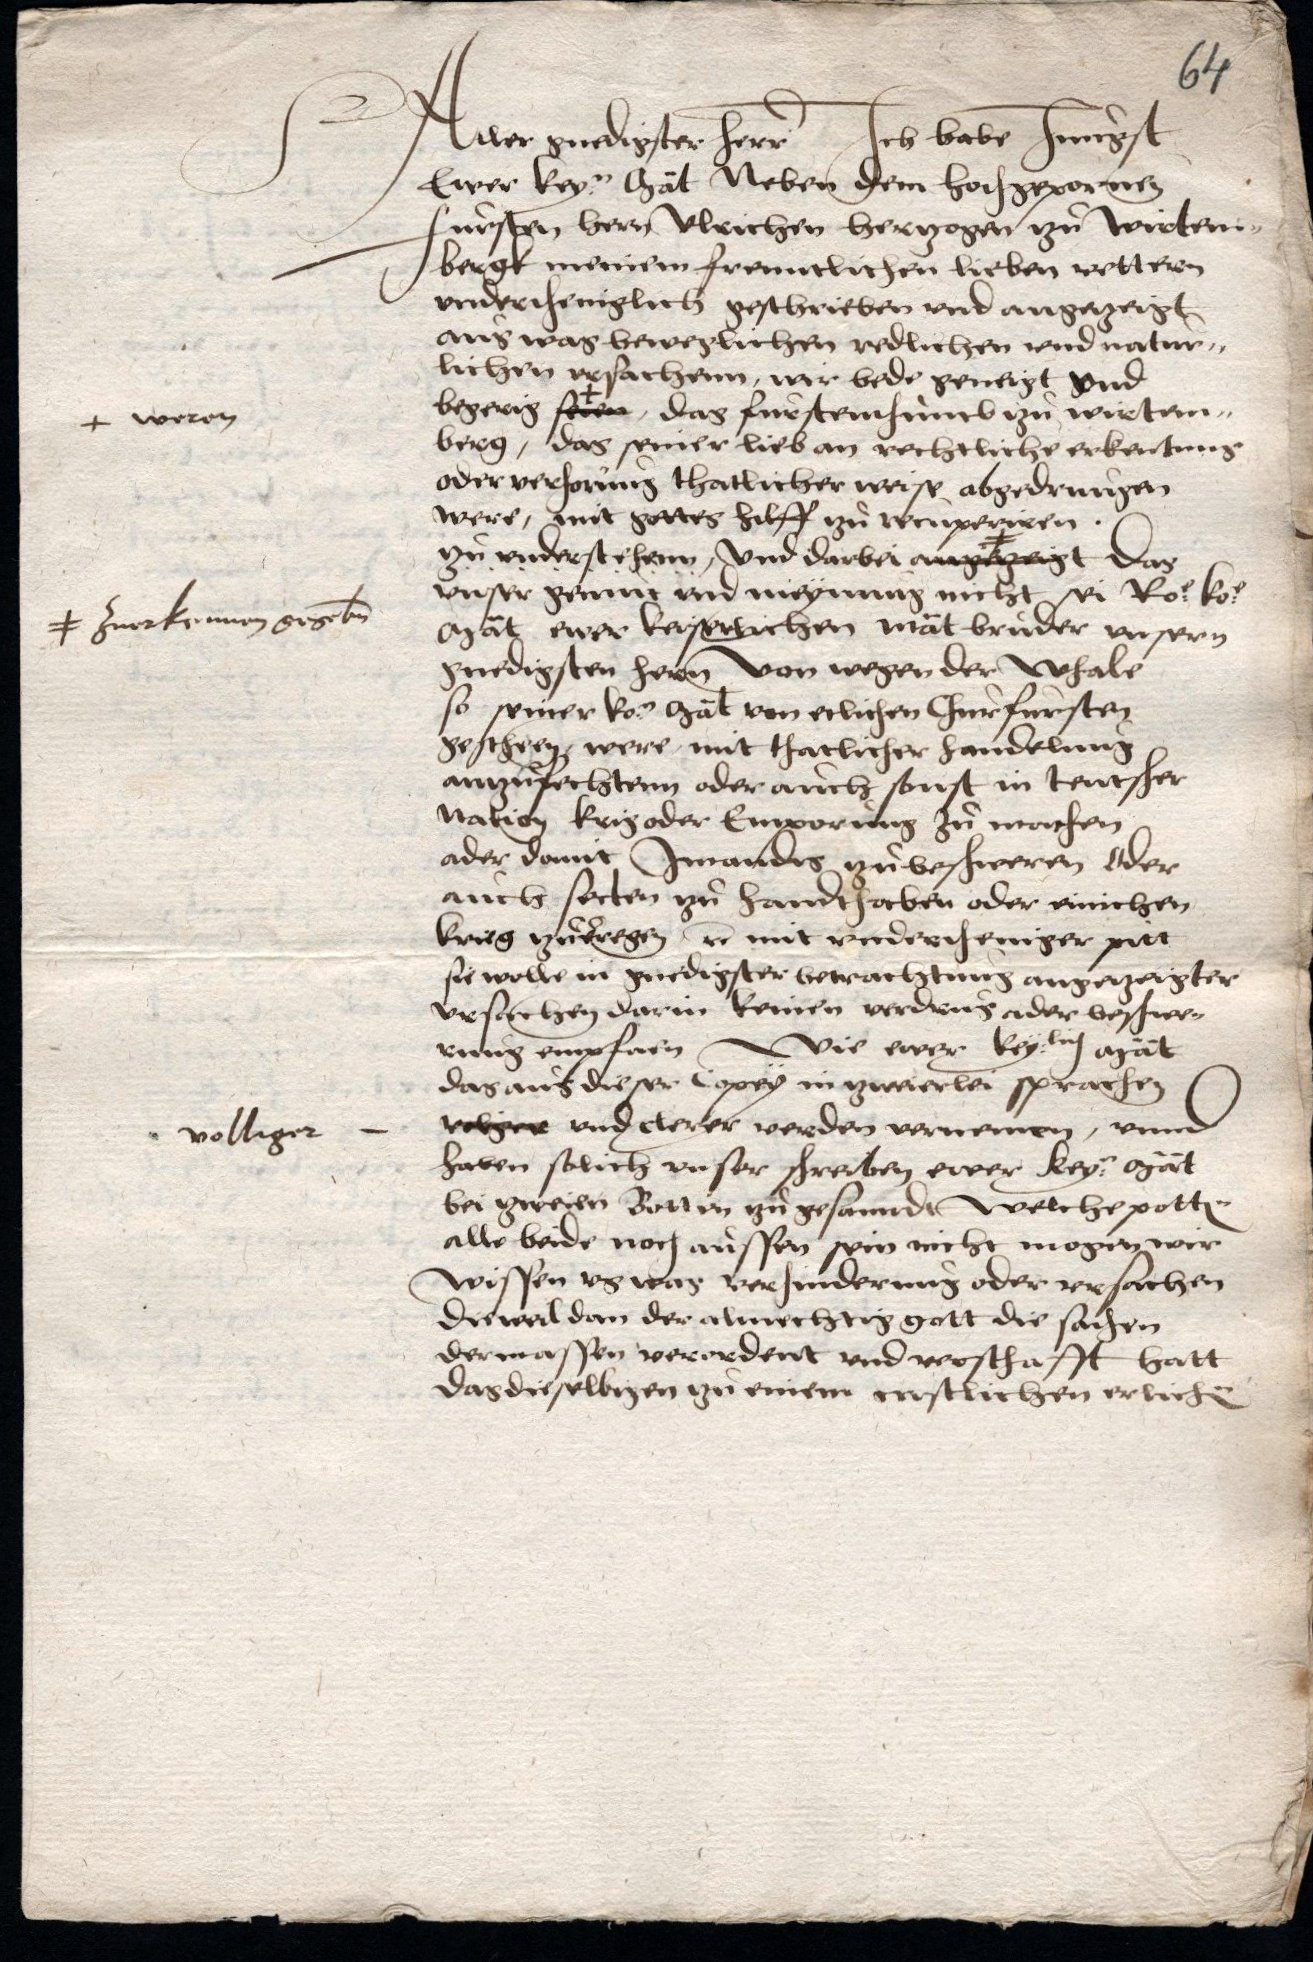 64
Aller gnedigster Herr Ich habe Jungst
Ewer key.n Mat Neben dem hochgepornen
fursten hern Ulrichen hertzogen zu Wirtem„
bergk meinem freuntlichen lieben vettern
undertheniglich geschrieben und angetzeigt
aus was beweglichen redlichen und natur„
lichen ursachenn, wir bede geneigt und
+ weren
begerig seien +, das furstenthumb zu wirtem„
berg, das seiner lieb an rechtliche erkentnus
oder verhorung thatlicher weise abgedrungen
were, mit gottes hilff zu recuperiren.
zu understehenn, Und darbei angetzeigt ‡ Das
‡ Zuerkennen gegeben
unser gemut und meynung nicht sei Ro.e ko.e
Mat ewer keiserlichen mat bruder unsern
gnedigsten hern Von wegen der Whale
so seiner ko.n Mat von etlichen Churfursten
gescheen were mit thatlicher handelung
antzufechtenn oder auch sonst in teutscher
Nation krig oder Emporung zu machen
ader damit Jmandts zu beschweren Oder
auch secten zu handthaben oder einichen
krieg zu erregen rc mit undertheniger pitt
sie wolle in gnedigster betrachtung angetzeigter
ursachen darin keinen verdrus ader beschwe„
rung empfaen Wie ewer key.lich Mat
das aus dieser Copey in zweierlei sprachen
volliger –
volger und clerer werden vernemen, unnd
haben solich unser schreiben ewer key.n Mat
bei zweien Botten zu gesanndt Welche potten
alle beide noch aussen sein nicht mogen wir
wissen us was verhinderung oder ursachen
Dieweil dan der almechtig gott die sachen
dermassen verordent und verschafft hatt
das dieselbigen zu einem cristlichen erlichen